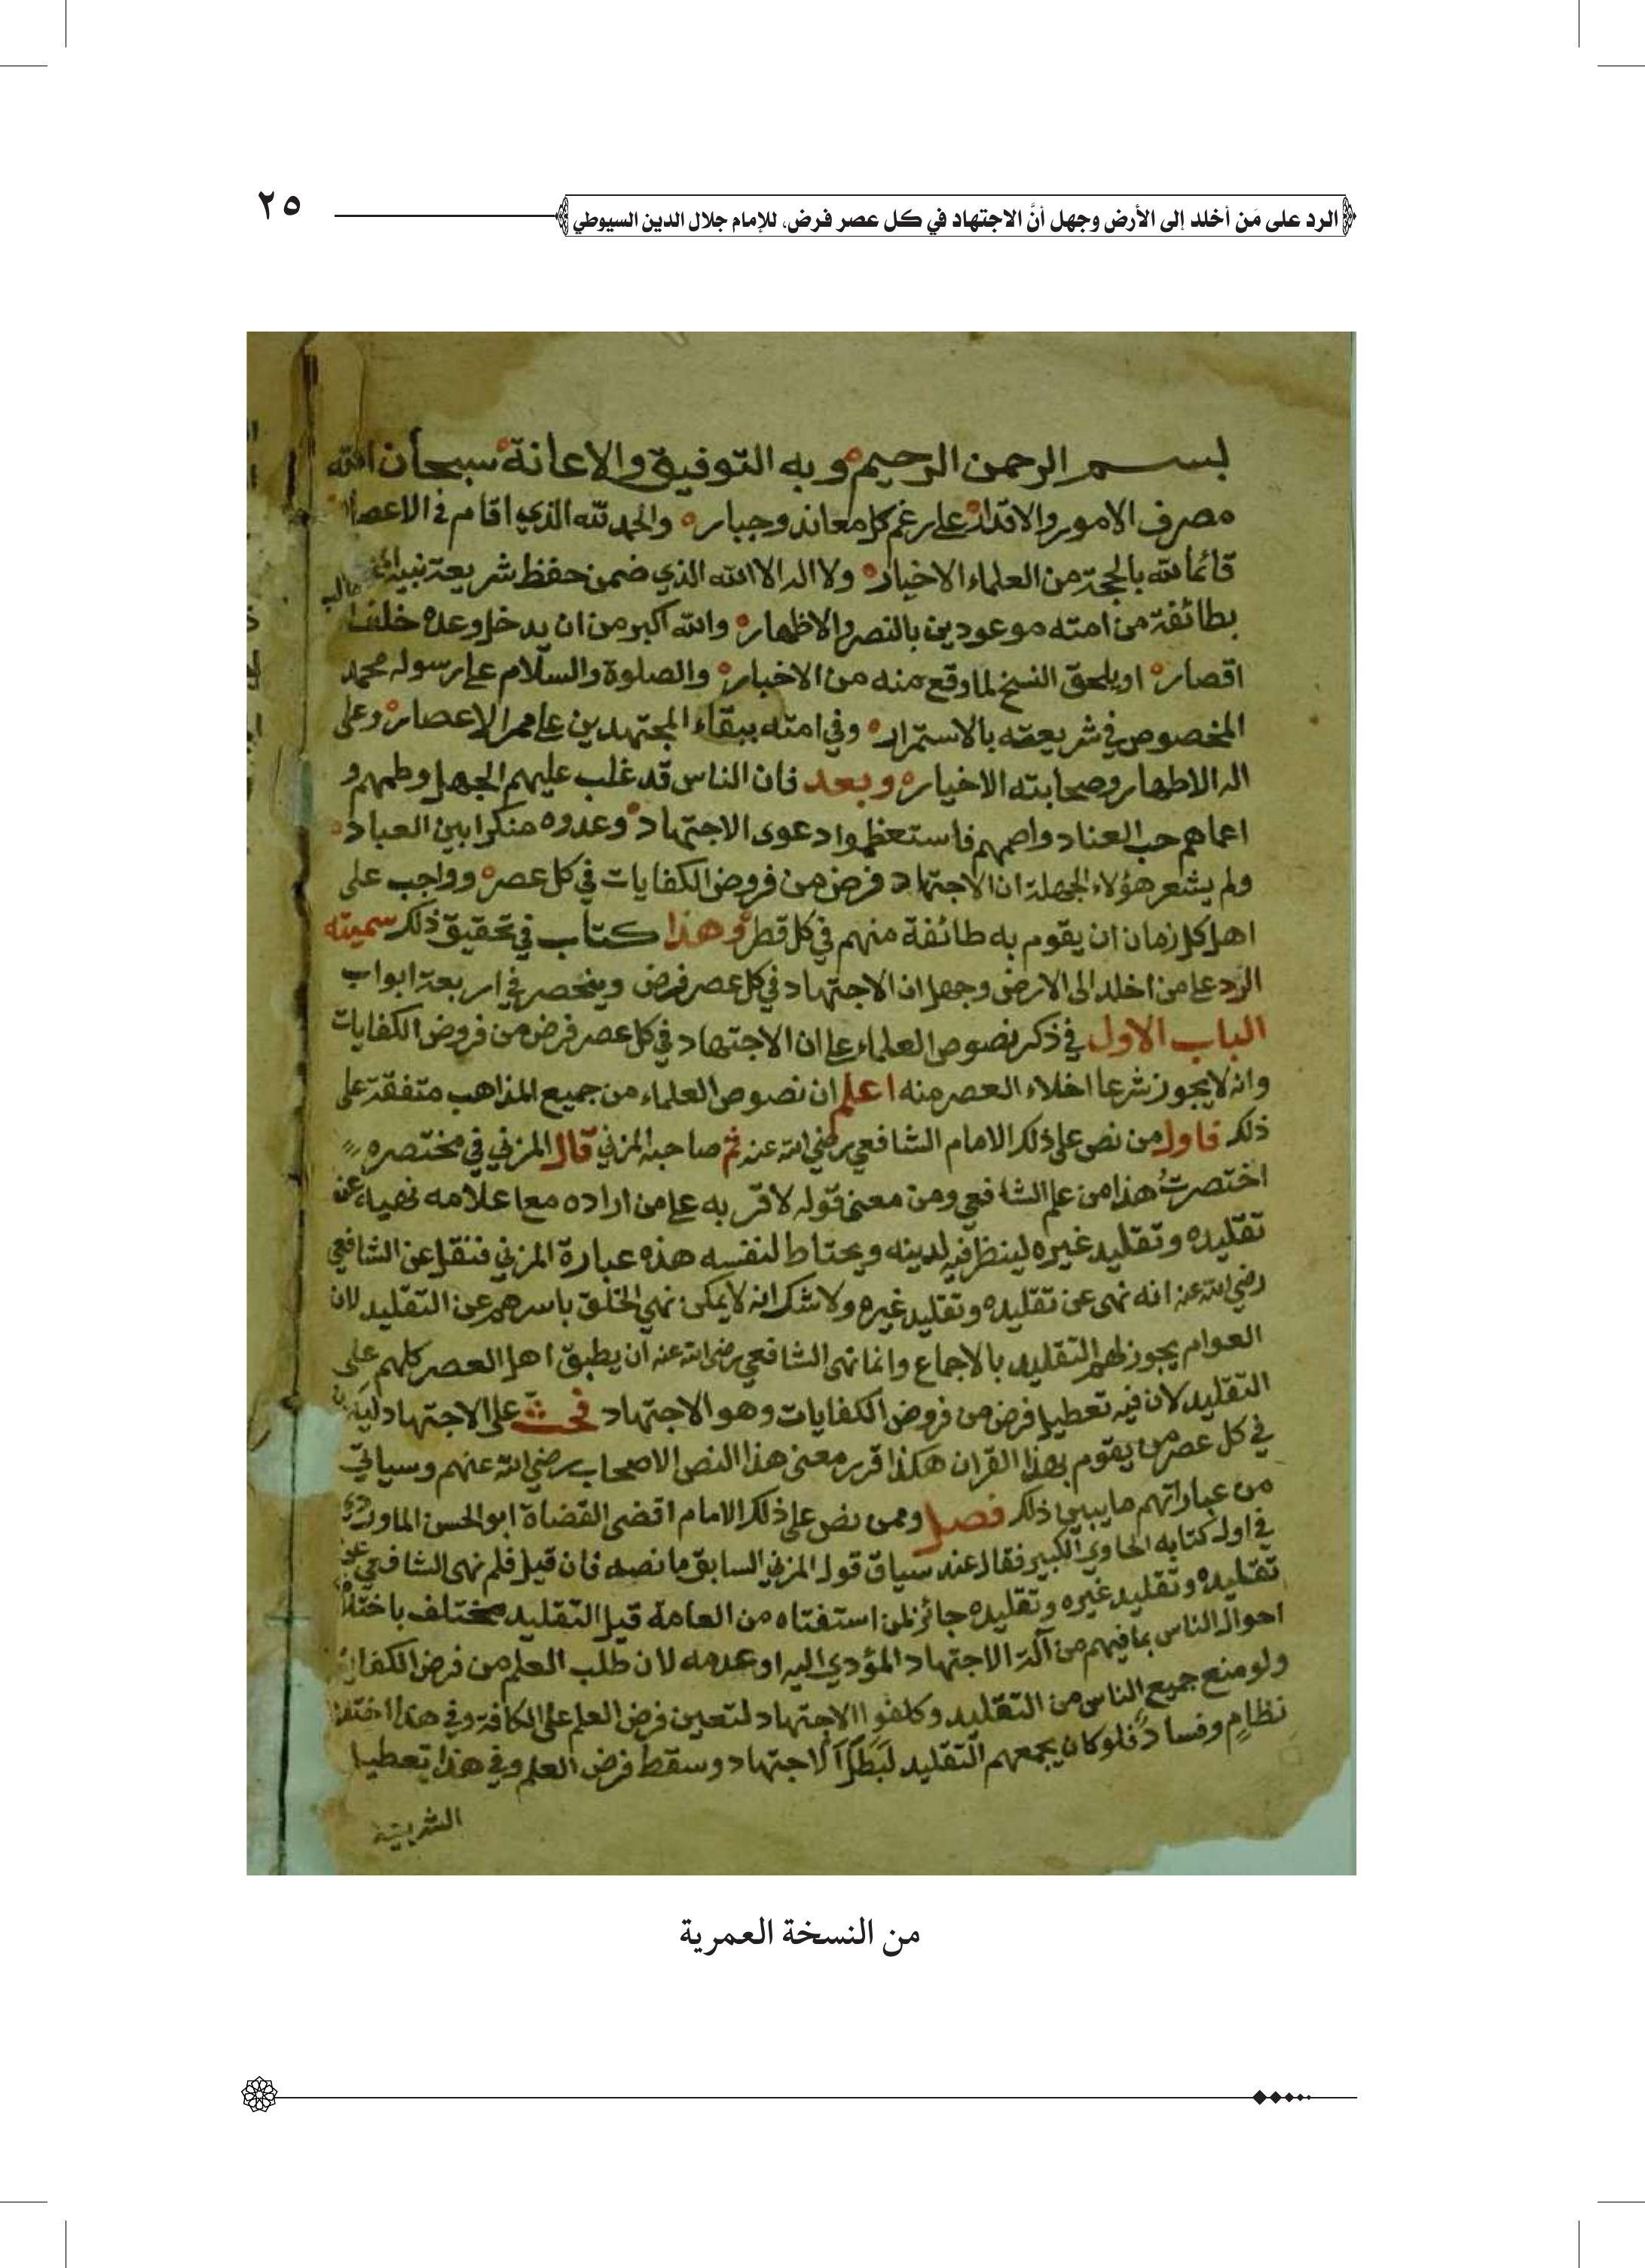 الرد على مَن أخلد إلى الأرض وجهل أنَّ الاجتهاد في كل عصر فرض، للإمام جلال الدين السيوطي
٢٥
بسم الرحمن الرحيم وبه التوفيق والاعانة سبحان الله
مصرف الامور والاقدار على رغم كل معاند وجبار والحمد لله الذي اقام في الاعصار
قائما لله بالحجة من العلماء الاخيار ولا اله الا الله الذي ضمن حفظ شريعة نبيه
بطائفة من امته موعودين بالنصر والاظهار والله اكبر من ان يدخل وعده خلف
اقصار او يلحق النسخ لما وقع منه من الاخبار والصلوة والسلام على رسوله محمد
المخصوص في شريعته بالاستمرار وفي امته ببقاء المجتهدين على ممر الاعصار وعلى
اله الاطهار وصحابته الاخيار وبعد فان الناس قد غلب عليهم الجهل وطمهم و
اعماهم حب العناد واصمهم فاستعظموا دعوى الاجتهاد وعدوه منكرا بين العباد
ولم يشعر هؤلاء الجهلة ان الاجتهاد فرض من فروض الكفايات في كل عصر وواجب على
اهل كل زمان ان يقوم به طائفة منهم في كل قطر وهذا كتاب في تحقيق ذلك سميته
الرد على من اخلد الى الارض وجهل ان الاجتهاد في كل عصر فرض وينحصر في اربعة ابواب
الباب الاول في ذكر نصوص العلماء على ان الاجتهاد في كل عصر فرض من فروض الكفايات
وانه لا يجوز شرعا اخلاء العصر منه اعلم ان نصوص العلماء من جميع المذاهب متفقة على
ذلك فاول من نص على ذلك الامام الشافعي رضي الله عنه ثم صاحبه المزني قال المزني في مختصره
اختصرتُ هذا من علم الشافعي ومن معنى قوله لاقربه على من اراده مع اعلامه نهيه عن
تقليده وتقليد غيره لينظر فيه لدينه ويحتاط لنفسه هذه عبارة المزني فنقل عن الشافعي
رضي الله عنه انه نهى عن تقليده وتقليد غيره ولا شك انه لا يمكن نهي الخلق باسرهم عن التقليد لان
العوام يجوز لهم التقليد بالاجماع وانما نهى الشافعي رضي الله عنه ان يطبق اهل العصر كلهم على
التقليد لان فيه تعطيل فرض من فروض الكفايات وهو الاجتهاد فحث على الاجتهاد ليكون
في كل عصر من يقوم بهذا القران هكذا قرر معنى هذا النص الاصحاب رضي الله عنهم وسياتي
من عباراتهم ما يبين ذلك فصل وممن نص على ذلك الامام اقضى القضاة ابو الحسن الماوردي
في اول كتابه الحاوي الكبير فقال عند سياق قول المزني السابق ما نصه فان قيل فلم نهى الشافعي عن
تقليده وتقليد غيره وتقليده جائز لمن استفتاه من العامة قيل التقليد مختلف باختلاف
احوال الناس بما فيهم من آلة الاجتهاد المؤدي اليه او عدمه لان طلب العلم من فرض الكفاية
ولو منع جميع الناس من التقليد وكلفوا الاجتهاد لتعين فرض العلم على الكافة وفي هذا اختلال
نظامٍ وفساد فلو كان يجمعهم التقليد لَبَطَلَ الاجتهاد وسقط فرض العلم وفي هذا تعطيل
الشريعة
من النسخة العمرية